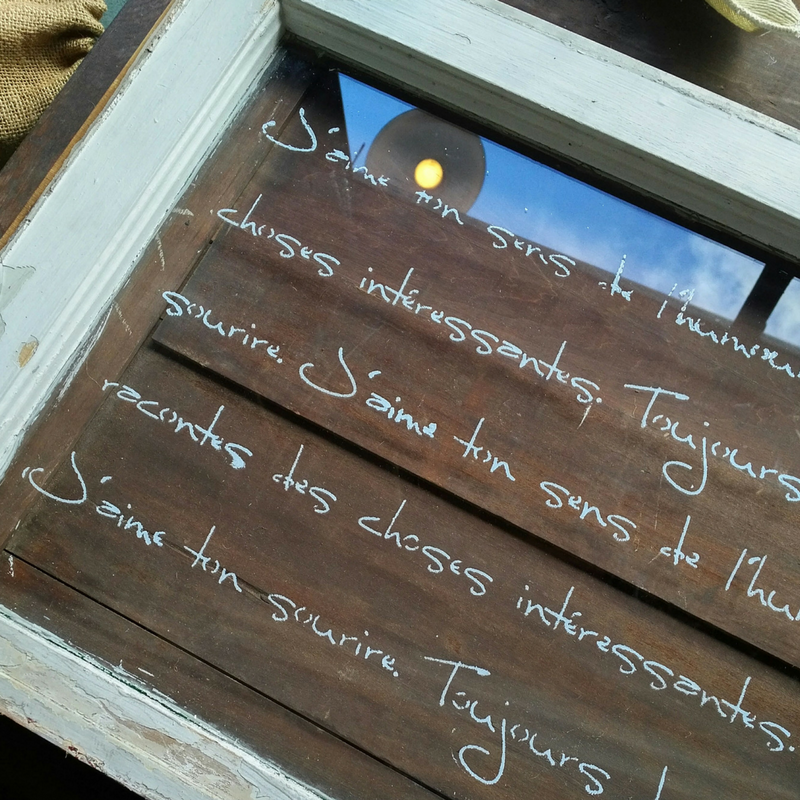 J'aime ton sens de l'humour
choses intéressantes. Toujours
sourire. J'aime ton sens de l'hu
racontes des choses intéressantes.
J'aime ton sourire. Toujours